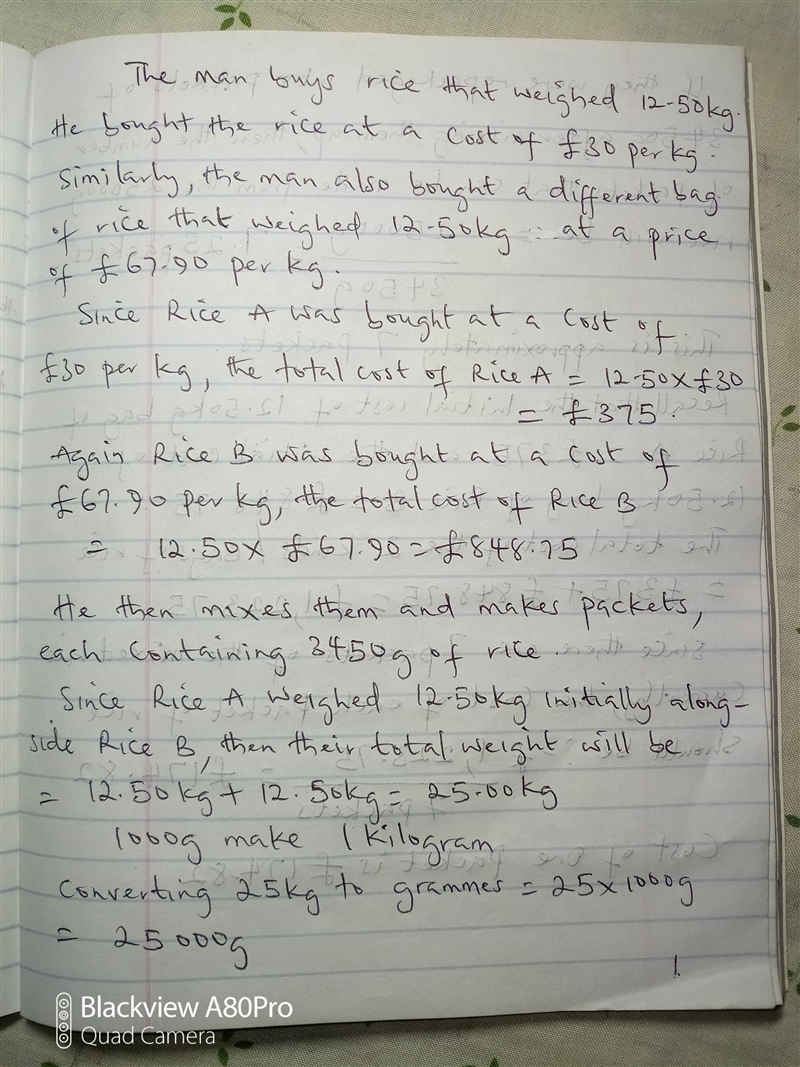 The man buys rice that weighed 12.50kg.
He bought the rice at a cost of £30 per kg.
Similarly, the man also bought a different bag
of rice that weighed 12.50kg at a price
of £67.90 per kg.
Since Rice A was bought at a cost of
£30 per kg, the total cost of Rice A = 12.50x£30
= £375.
Again Rice B was bought at a cost of
£67.90 per kg, the total cost of Rice B
= 12.50x £67.90 = £848.75
He then mixes them and makes packets,
each containing 3450g of rice.
Since Rice A weighed 12.50kg initially along-
side Rice B, then their total weight will be
= 12.50kg + 12.50kg = 25.00kg
1000g make 1 Kilogram
Converting 25kg to grammes = 25x1000g
= 25000g
1.
Blackview A80Pro
Quad Camera